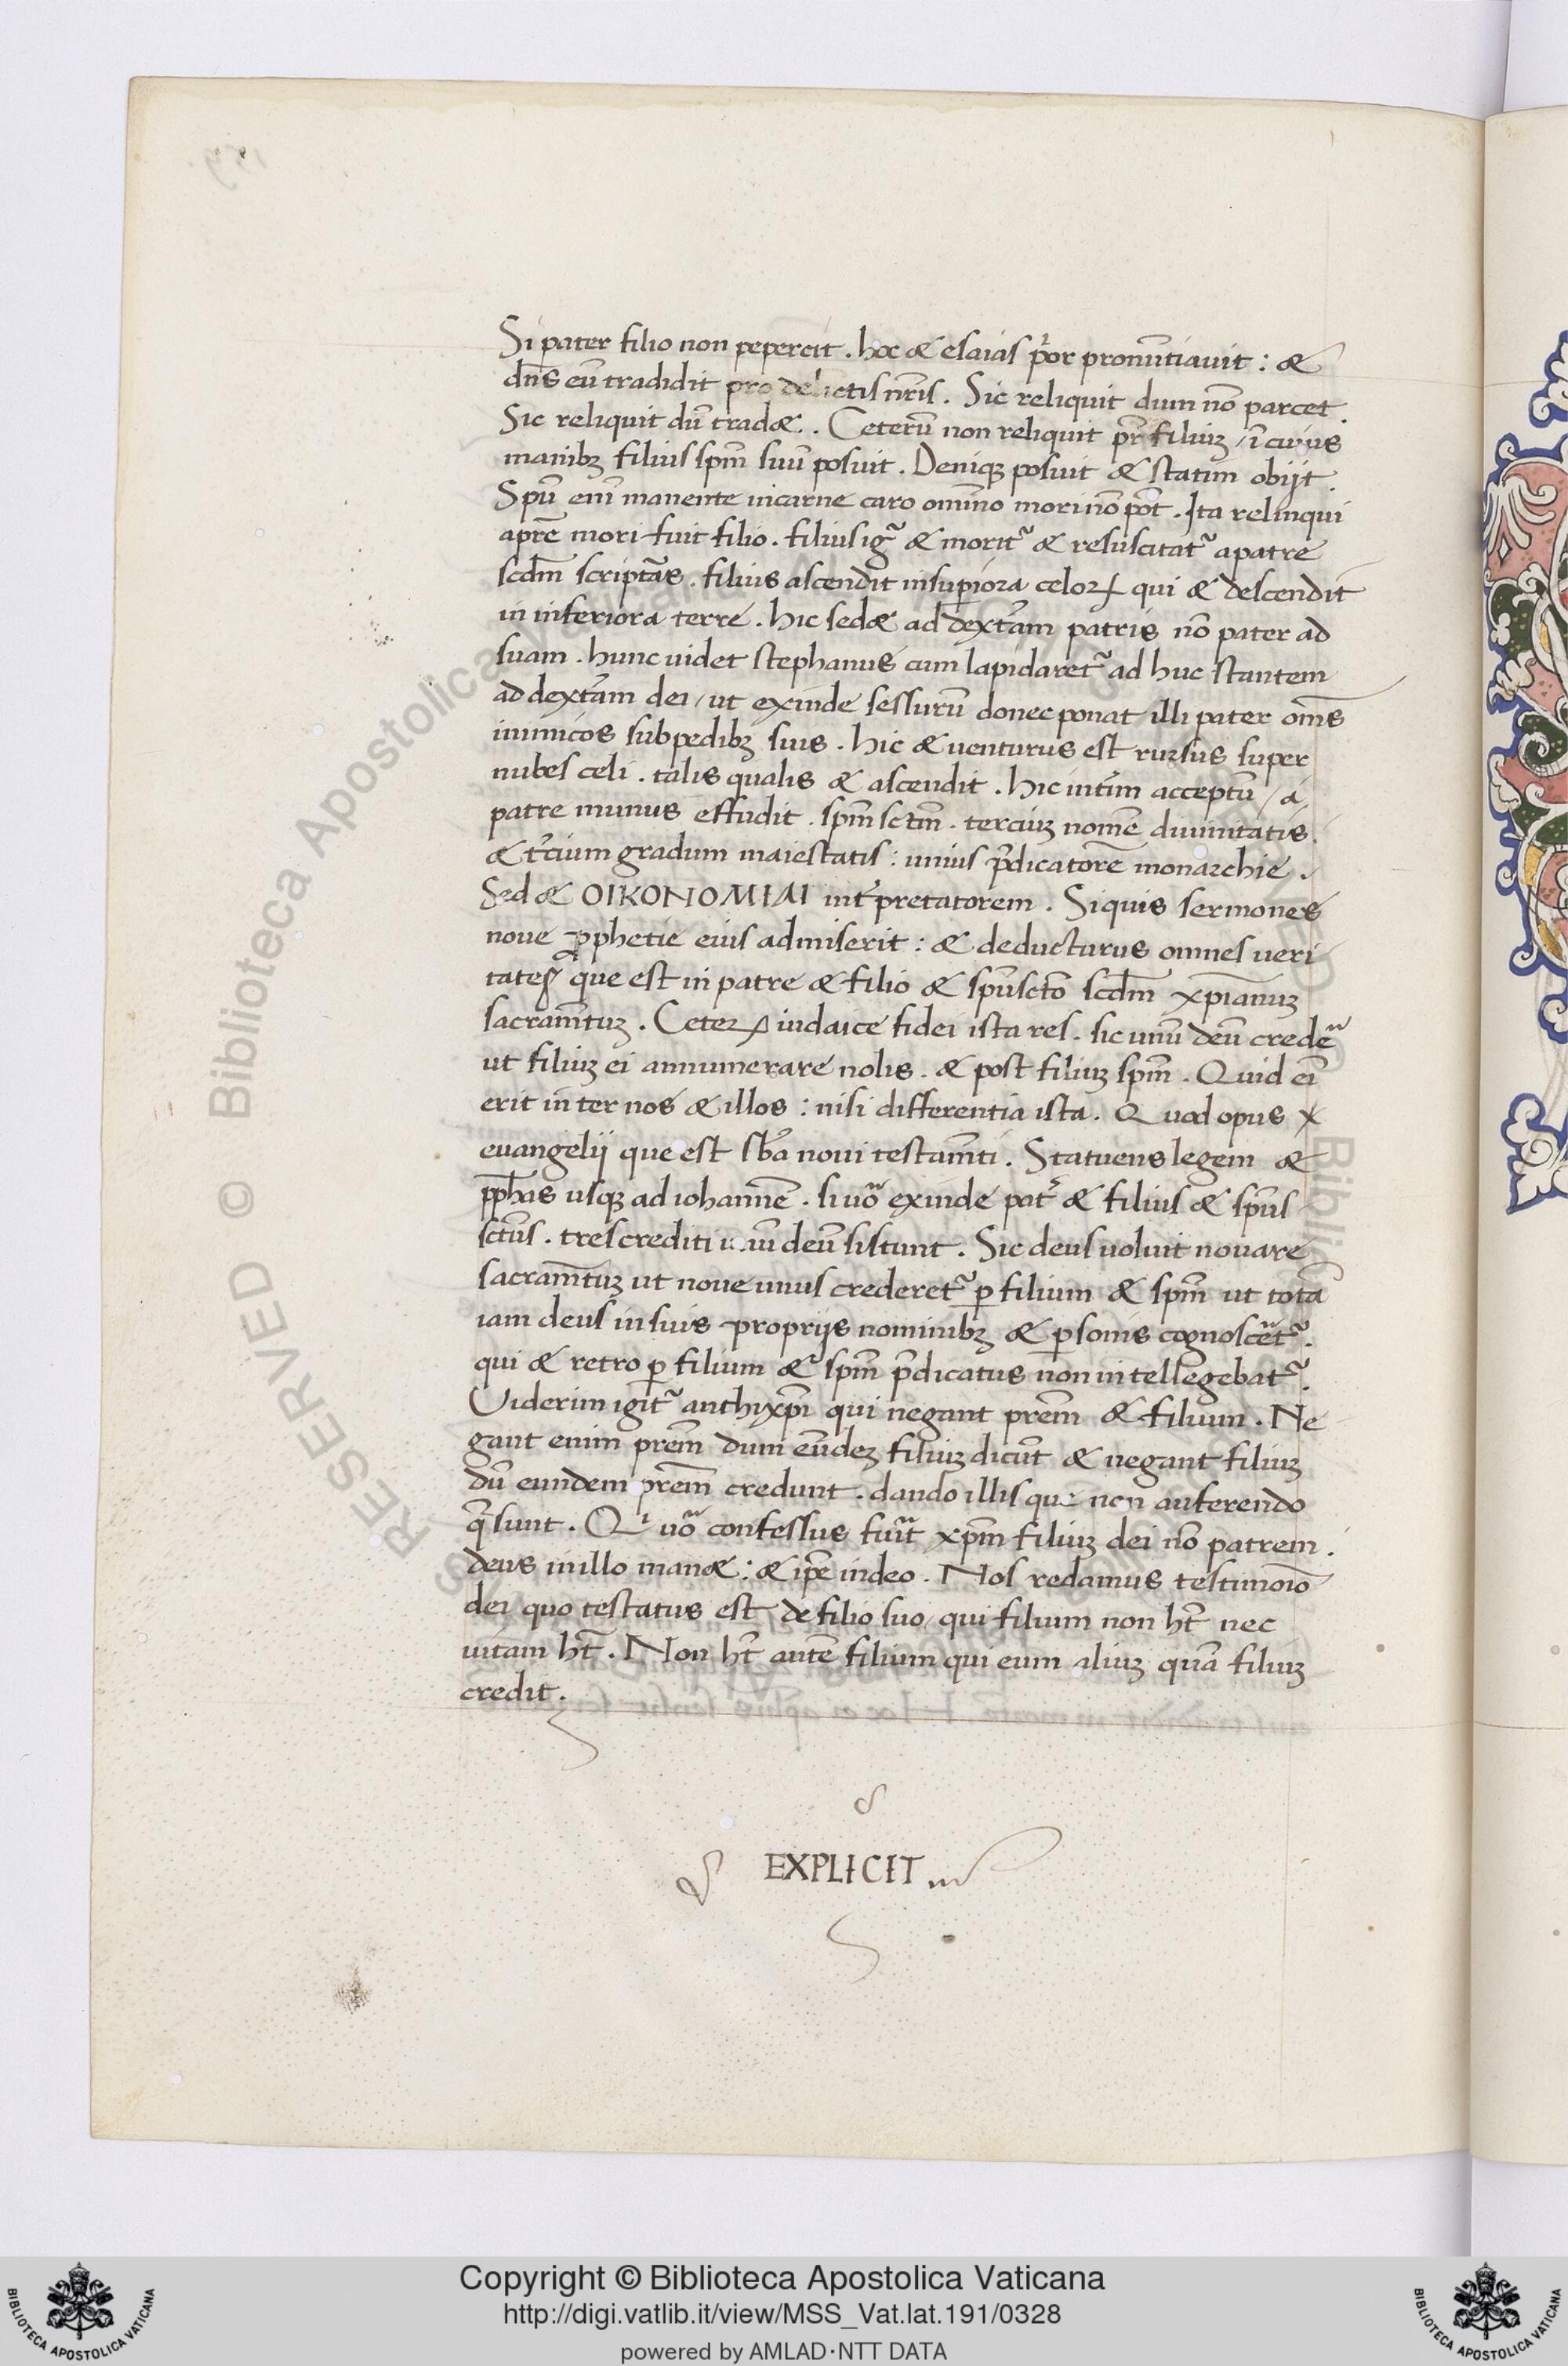 Si pater filio non pepercit . hoc & esaias p̄or pronūtiavit : &
dn̄s eū tradidit pro delictis nr̄is . Sic reliquit dum nō parcet .
Sic reliquit dū trad& . Ceterū non reliquit pr̄ filiuꝫ / ī cuius
manibꝫ filius sp̄m suū posuit . Deniqꝫ posuit & statim obijt .
Spū eni᷒ manente incarne caro omīno mori nō pōt . Ita relinqui
apr̄e mori fuit filio . filius igr̃ & morit᷑ & resuscitat᷑ apatre
scd̄m scriptās . filius ascendit insup̱iora celoꝝ qui & descendit
in inferiora terre . hic sed& ad dext̄am patris nō pater ad
suam . hunc uidet stephanus cum lapidaret᷑ ad huc stantem
ad dext̄am dei / ut exinde sessurū donec ponat illi pater om̄s
inimicos sub pedibꝫ suis . hic & uenturus est rursus super
nubes celi . talis qualis & ascendit . hic int̄im acceptū / a
patre munus effudit . sp̄m sc̄tm . terciuꝫ nomē diuinitatis .
& t̄cium gradum maiestatis : unius p̄dicatorē monarchie .
Sed & OIKONOMIAI int̄pretatorem . Siquis sermones
noue ꝓphetie eius admiserit : & deducturus omnes ueri
tates que est in patre & filio & spūscto scd̄m xp̄ianuꝫ
sacram̄tuꝫ . Ceteꝝ iudaice fidei ista res . sic unū deū crede᷑
ut filiuꝫ ei annumerare nolis . & post filiuꝫ sp̄m . Quid ei᷒
erit inter nos & illos : nisi differentia ista . Quod opus x
euangelij que est sb̄a noui testam̄ti . Statuens legem &
ꝓphas usqꝫ ad iohannē . si uō exinde pat̄ & filius & sp̄us
sct̄us . tres crediti unū deū sistunt . Sic deus uoluit nouare
sacram̄tuꝫ ut noue unus crederet᷑ ꝑ filium & sp̄m ut totā
iam deus in suis propriis nominibꝫ & ꝑsonis cognoscēt᷑ .
qui & retro ꝑ filium & sp̄m p̄dicatus non intellegebat᷑ .
Uiderim igit᷑ anthixp̄i qui negant prēm & filium . Ne
gant enim prēm dum eūdeꝫ filiuꝫ dicūt & negant filiuꝫ
dū eundem prēm credunt . dando illis que non auferendo
q̄ sunt . Qⁱ uō confessus fūit xp̄m filiuꝫ dei nō patrem .
deus in illo man& : & ip̄e indeo . Nos redamus testimoīo
dei quo testatus est de filio suo / qui filium non ht̄ nec
uitam ht̄ . Non ht̄ autē filium qui eum aliuꝫ quā filiuꝫ
credit .
EXPLICIT
Copyright © Biblioteca Apostolica Vaticana
http://digi.vatlib.it/view/MSS_Vat.lat.191/0328
powered by AMLAD·NTT DATA
BIBLIOTECA APOSTOLICA VATICANA
BIBLIOTECA APOSTOLICA VATICANA
RESERVED © Biblioteca Apostolica